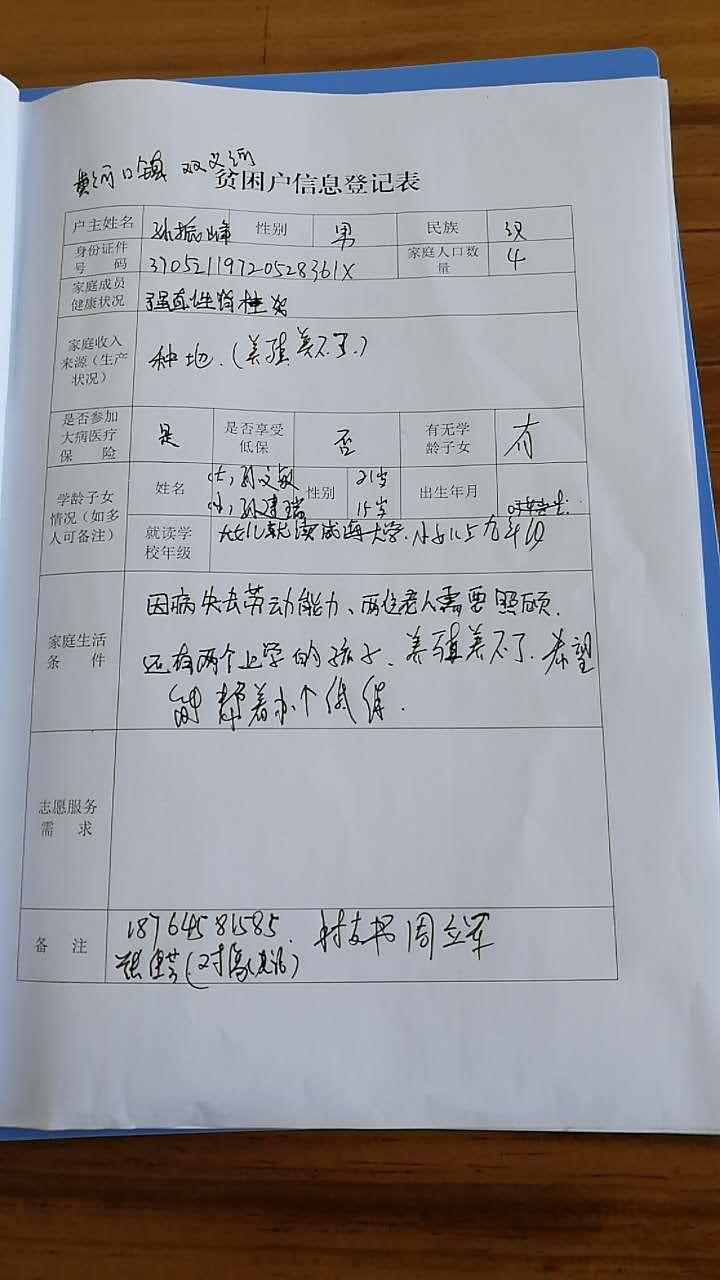 黄河口镇 双义河
贫困户信息登记表
户主姓名 孙振峰 性别 男 民族 汉
身份证件号 码 37052119720528361X 家庭人口数量 4
家庭成员健康状况 强直性脊柱炎
家庭收入来源(生产状况) 种地.(养殖养不了.)
是否参加大病医疗保 险 是 是否享受低保 否 有无学龄子女 有
学龄子女情况(如多人可备注) 姓名 (大)孙文敏 性别 21岁 出生年月
(小)孙建瑞 15岁
就读学校年级 大女儿就读威海大学.小女儿上九年级
家庭生活条 件 因病失去劳动能力、两位老人需要照顾.
还有两个上学的孩子、养殖养不了.希望
能帮着办个低保.
志愿服务需 求
备 注 18764581585. 村支书周立军